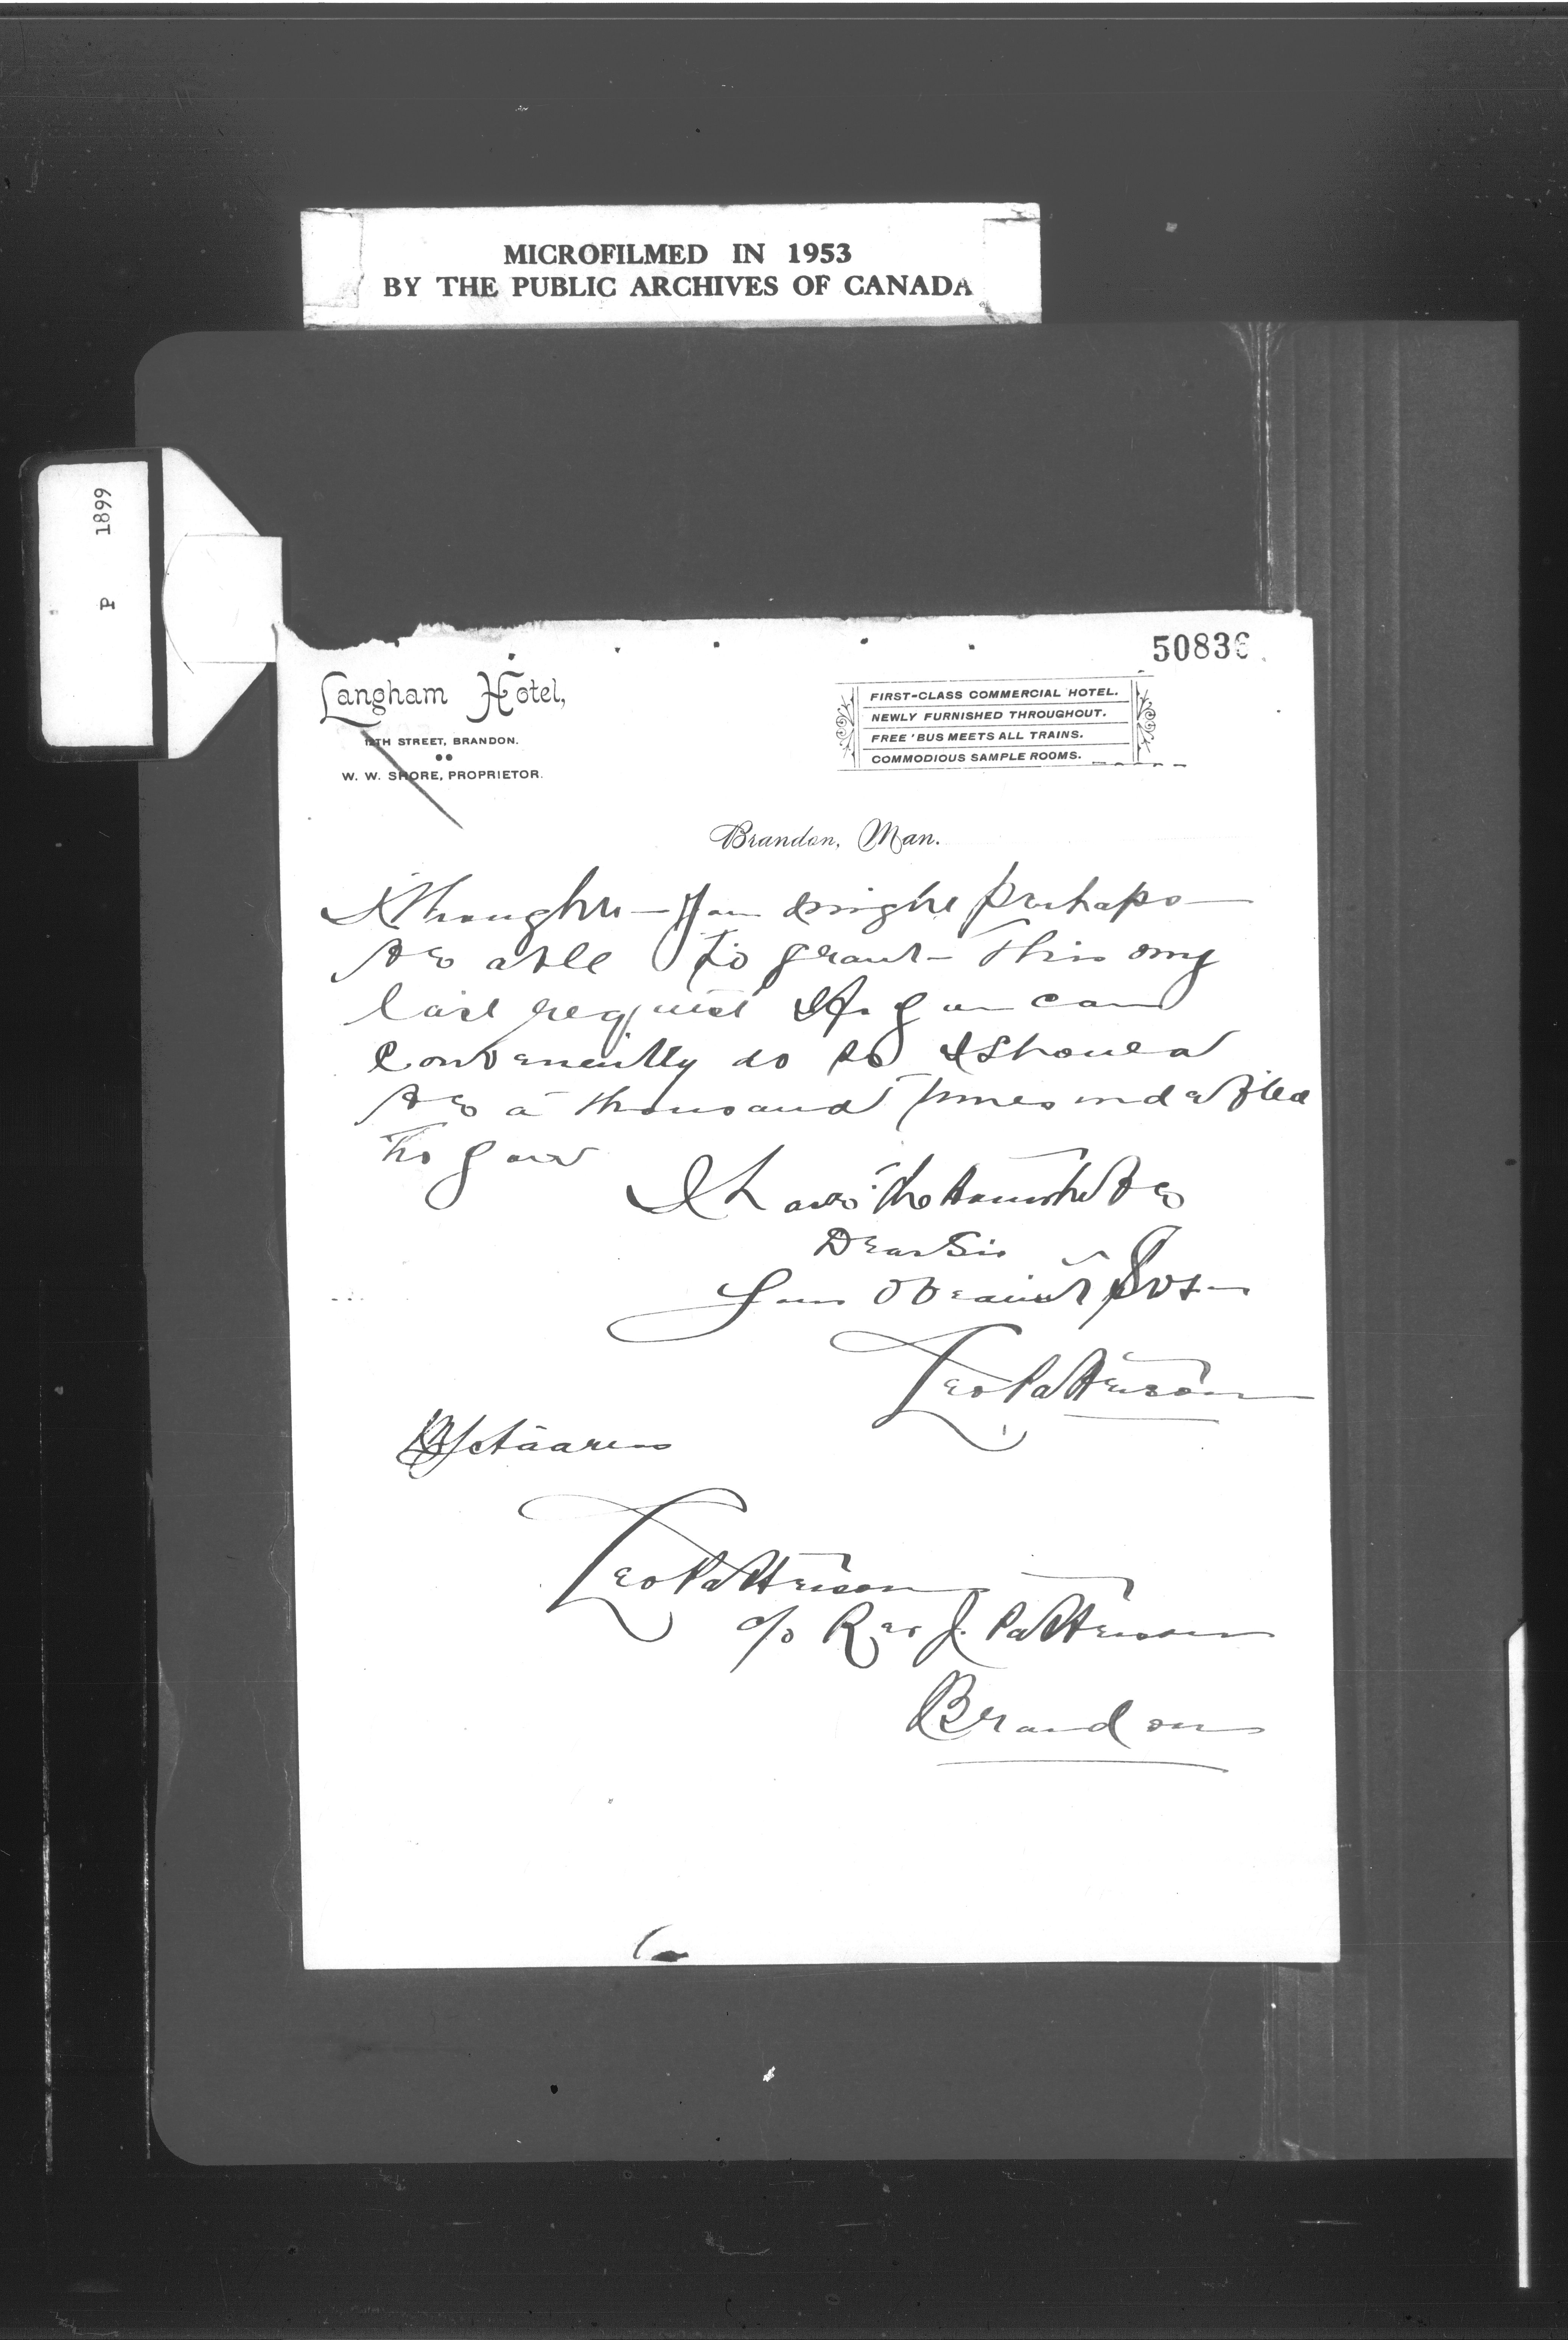 MICROFILMED IN 1953
BY THE PUBLIC ARCHIVES OF CANADA
P 1899
50836
Langham Hotel,
12TH STREET, BRANDON.
W. W. SHORE, PROPRIETOR.
FIRST-CLASS COMMERCIAL HOTEL.
NEWLY FURNISHED THROUGHOUT.
FREE 'BUS MEETS ALL TRAINS.
COMMODIOUS SAMPLE ROOMS.
Brandon, Man.
I thought you might perhaps
be able to grant this my
last request If you can
conveniently do so I should
be a thousand times indebted
to you
I have the honor to be
Dear Sir
Your Obedient Svt
Leo Patterson
Address
Leo Patterson
c/o Rev J. Patterson
Brandon